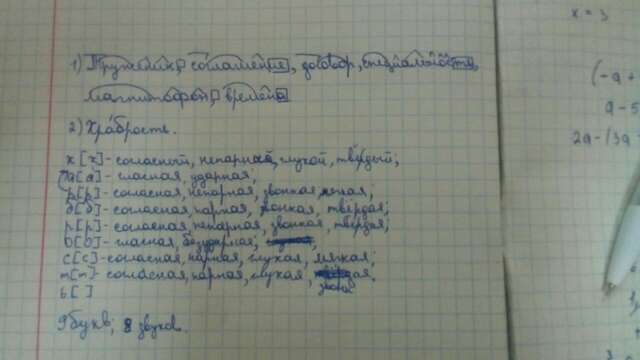 1) Труженик, соглашение, договор, специальность,
магнитофон, времена
2) Храбрость.
х [х] - согласный, непарный, глухой, твёрдый;
а [а] - гласная, ударная;
р [р] - согласная, непарная, звонкая,
б [б] - согласная, парная, звонкая, твёрдая;
р [р] - согласная, непарная, звонкая, твёрдая;
о [о] - гласная, безударная;
с [с] - согласная, парная, глухая, мягкая;
т [т] - согласная, парная, глухая
ь [ ]
9 букв; 8 звуков.
x = 3
(-a +
a - 5
2a - (3a